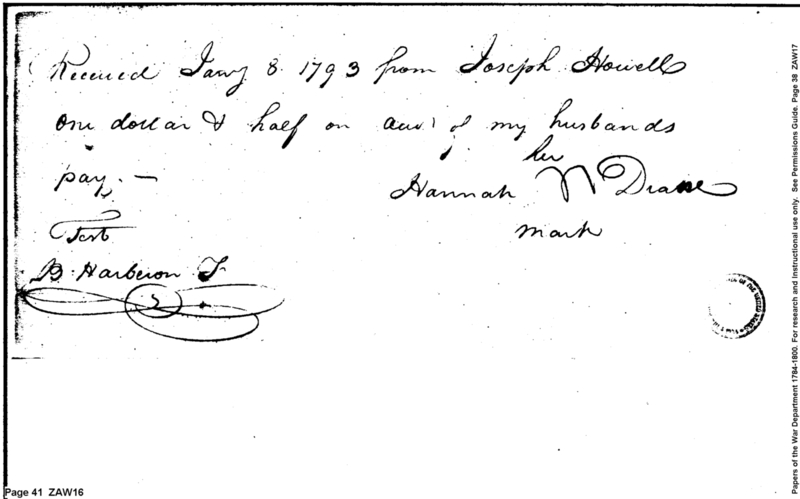 Received Jany 8. 1793 from Joseph Howell
one dollar & half on acct of my husbands
pay. —
her
Hannah Drane
mark
Test
B. Harbeson
Page 41 ZAW16
Papers of the War Department 1784-1800. For research and instructional use only. See Permissions Guide. Page 38 ZAW17